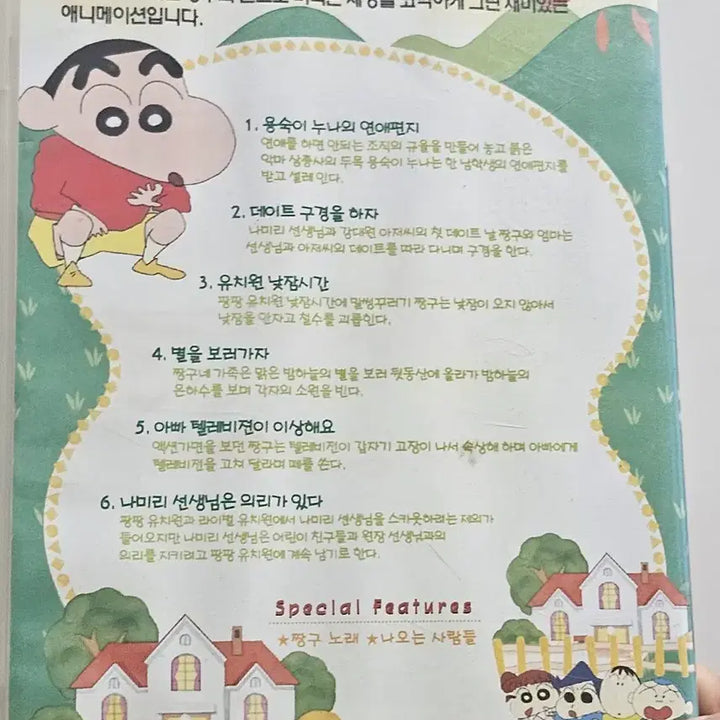 세상을 코믹하게 그린 재미있는
애니메이션입니다.
1. 용숙이 누나의 연애편지
연애를 하면 안되는 조직의 규율을 만들어 놓고 붉은
악마 상종사의 두목 용숙이 누나는 한 남학생의 연애편지를
받고 설레 인다.
2. 데이트 구경을 하자
나미리 선생님과 강대원 아저씨의 첫 데이트 날 짱구와 엄마는
선생님과 아저씨의 데이트를 따라 다니며 구경을 한다.
3. 유치원 낮잠시간
떡잎 유치원 낮잠시간에 말썽꾸러기 짱구는 낮잠이 오지 않아서
낮잠을 안자고 철수를 괴롭힌다.
4. 별을 보러가자
짱구네 가족은 맑은 밤하늘의 별을 보러 뒷동산에 올라가 밤하늘의
은하수를 보며 각자의 소원을 빈다.
5. 아빠 텔레비젼이 이상해요
액션가면을 보던 짱구는 텔레비젼이 갑자기 고장이 나서 속상해 하며 아빠에게
텔레비젼을 고쳐 달라며 떼를 쓴다.
6. 나미리 선생님은 의리가 있다
떡잎 유치원과 라이벌 유치원에서 나미리 선생님을 스카웃하려는 제의가
들어오지만 나미리 선생님은 어린이 친구들과 원장 선생님과의
의리를 지키려고 떡잎 유치원에 계속 남기로 한다.
Special Features
★짱구 노래 ★나오는 사람들